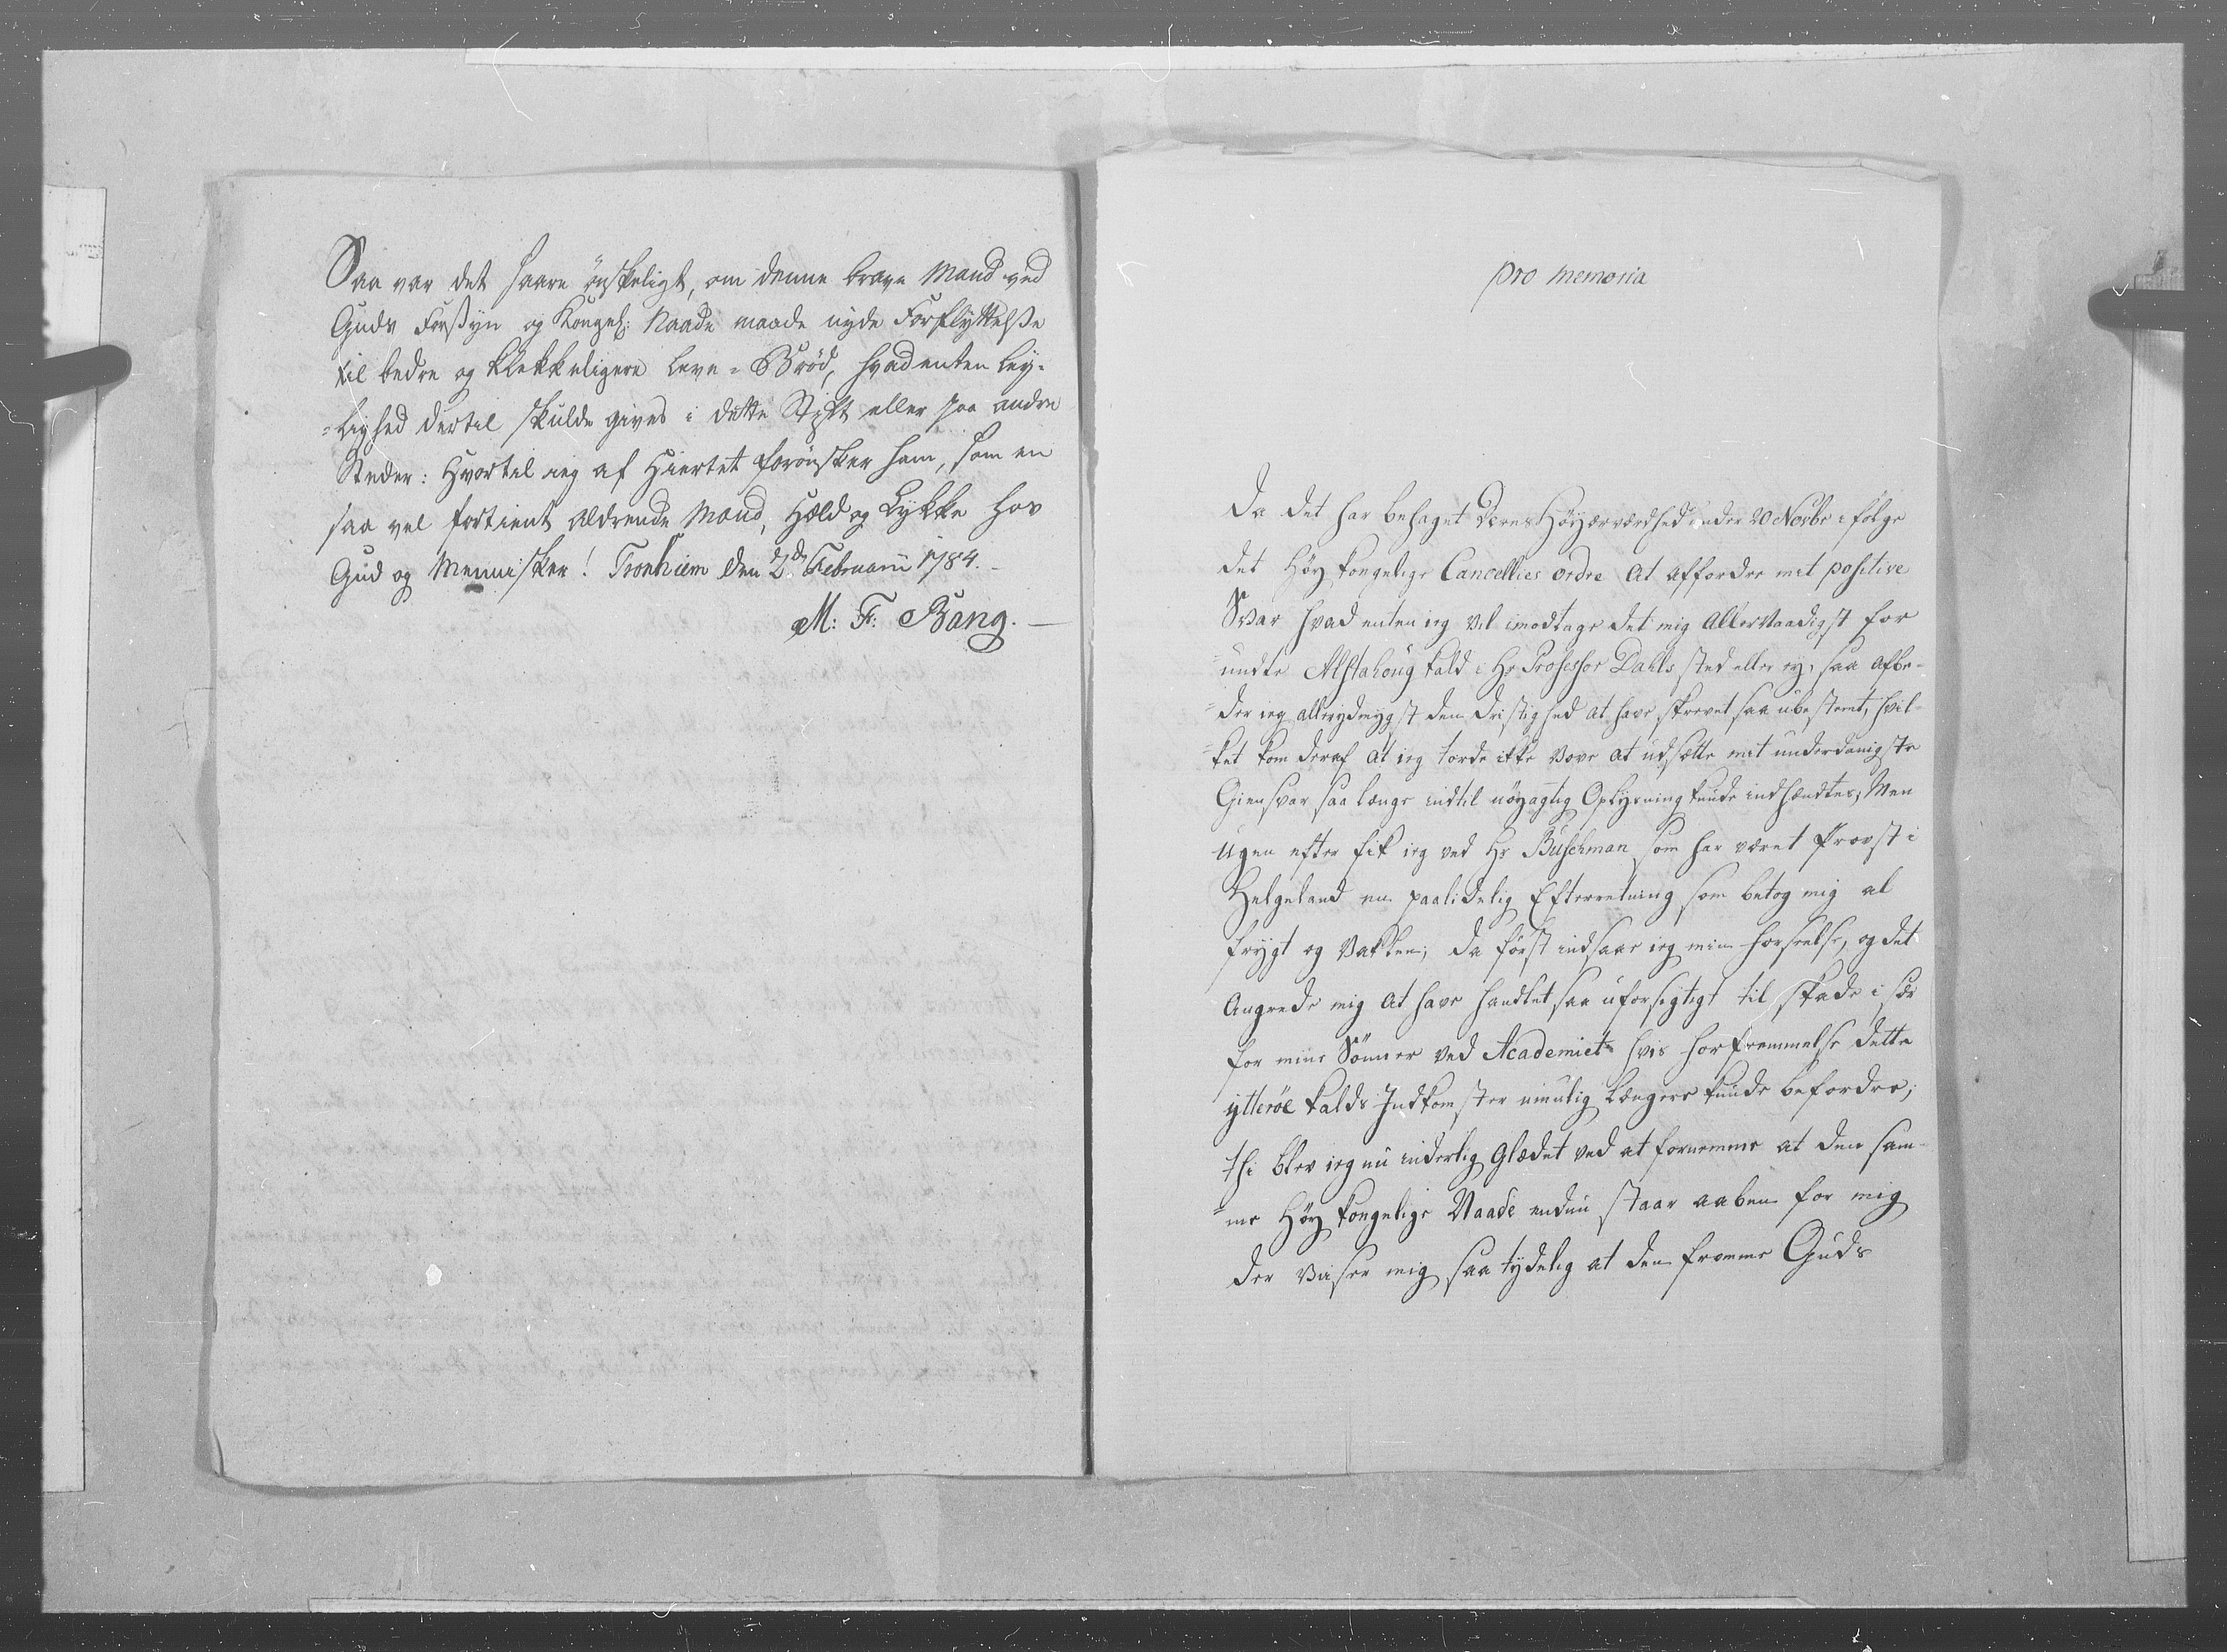 Saa var det saare önskeligt, om denne brave Mand ved
Guds Forsÿn og Kongel: Naade maade nyde Forflyttelsse
til bedre og klekkeligere Leve-Bröd, hvad enten Ley-
=lighed dertil skulde gives i dette Stift eller paa andre
Steder: Hvortil ieg af Hiertet forönsker ham, som en
saa vel fortient aldrende Mand, Held og Lykke hos
Gud og Mennisker! Tronhiem den 2d Februarii 1784.
M: F: Bang.
pro memoria
Da det har behaget Deres Høyærværdhed under 20 Novbr i følge
det Høy kongelige Cancellies ordre at affordre mit positive
Svar hvad enten ieg vil imodtage det mig allernaadigst for
=undte Alstahoug kald i Hr Professor Dahls sted eller ey, saa afbe-
=der ieg allerydmygst den dristighed at have skrevet saa ubestemt, hvil-
=ket kom deraf at ieg torde ikke vove at udsætte mit underdanigste
Giensvar saa længe indtil nöyagtig Oplysning kunde indhændtes, Men
Ugen efter fik ieg ved Hr Buschman som har været Provst i
Helgeland en paalidelig Efterretning som betog mig al
frygt og Vakken; da først indsaae ieg min forseelse, og det
Angrede mig at have handlet saa uforsigtigt til skade i sær
for mine Sönner ved Academiet hvis forfremmelse dette
ytteröe kalds Indkomster umulig længere kunde befordre;
thi blev ieg nu inderlig glædet ved at fornemme at den sam-
=me Høy kongelige Naade endnu staar aaben for mig
der viiser mig saa tydelig at den fromme Guds